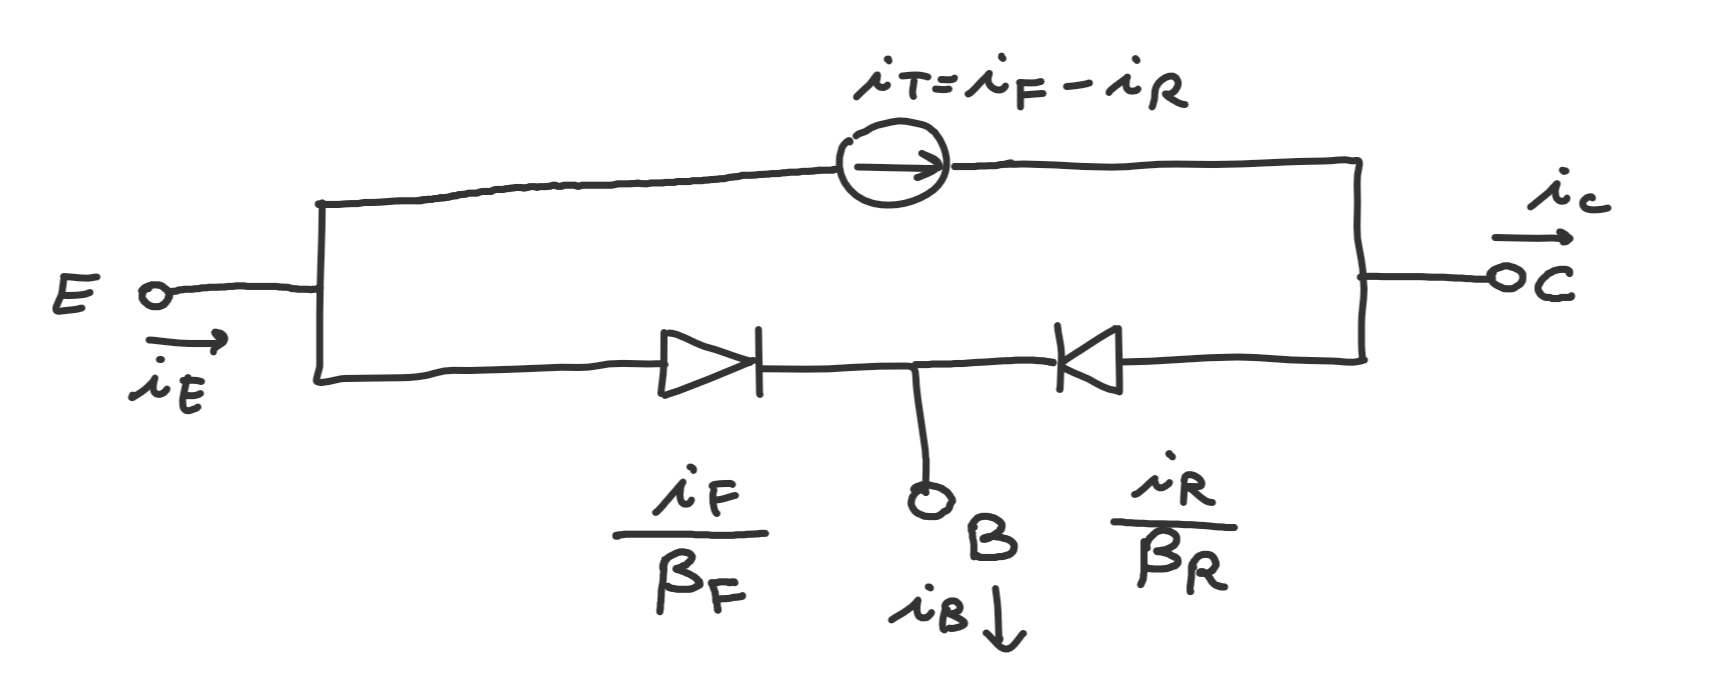 iT=iF-iR
iC
E
C
iE
iF
βF
iR
βR
B
iB